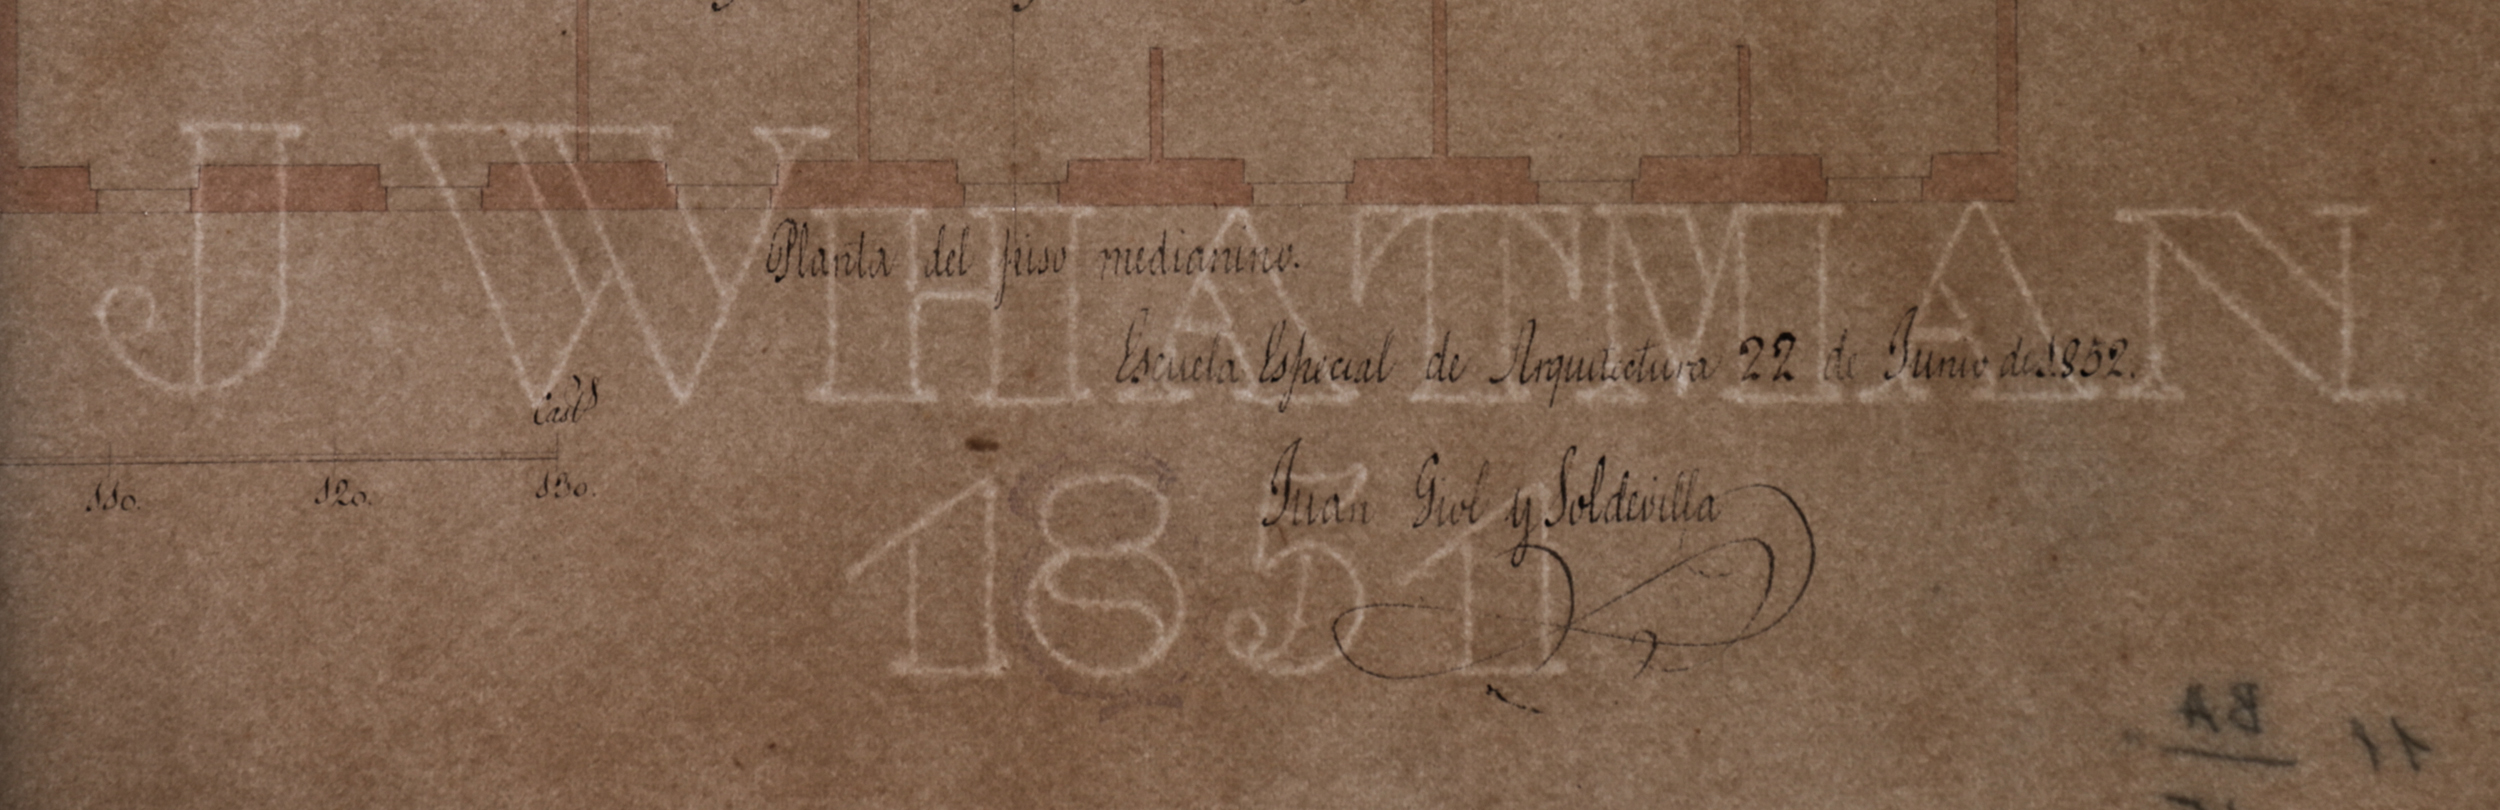 J WHATMAN
Planta del piso medianino.
Escuela Especial de Arquitectura 22 de Junio de 1852.
Cast.s
110. 120. 130.
Juan Giol y Soldevilla
1851
BA
11